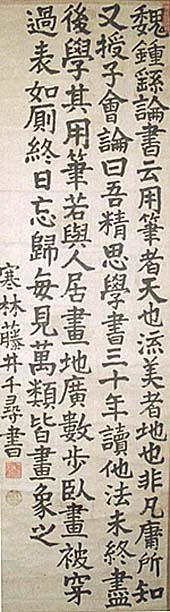 魏鍾繇論書云用筆者天也流美者地也非凡庸所知
又授子會論曰吾精思學書三十年讀他法未終盡
後學其用筆若與人居畫地廣數步臥畫被穿
過表如厠終日忘歸每見萬類皆畫象之
寒林藤井千尋書